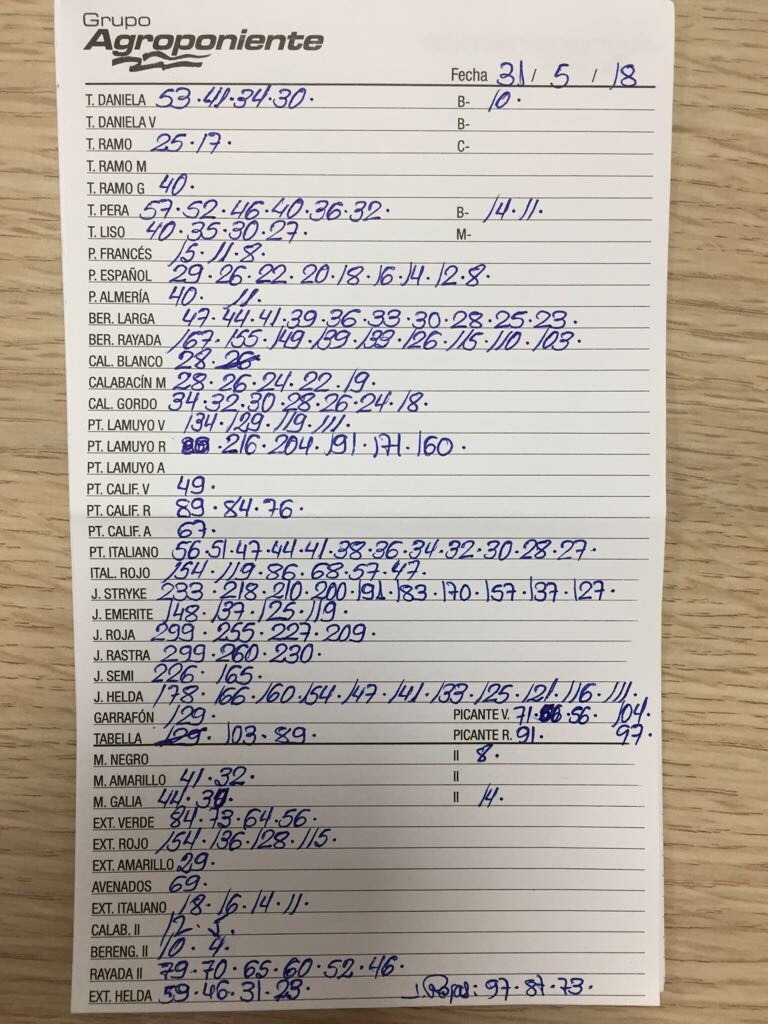 Grupo
Agroponiente
Fecha 31 / 5 / 18
T. DANELA 53·41·34·30· B- 10·
T. DANIELA V B-
T. RAMO 25·17· C-
T. RAMO M
T. RAMO G 40·
T. PERA 57·52·46·40·36·32· B- 14·11·
T. LISO 40·35·30·27· M-
P. FRANCÉS 15·11·8·
P. ESPAÑOL 29·26·22·20·18·16·14·12·8·
P. ALMERÍA 40· 11·
BER. LARGA 47·44·41·39·36·33·30·28·25·23·
BER. RAYADA 167·155·149·139·133·126·115·110·103·
CAL. BLANCO 28·26
CALABACÍN M 28·26·24·22·19·
CAL. GORDO 34·32·30·28·26·24·18·
PT. LAMUYO V 134·129·119·111·
PT. LAMUYO R ·216·204·191·171·160·
PT. LAMUYO A
PT. CALIF. V 49·
PT. CALIF. R 89·84·76·
PT. CALIF. A 67·
PT. ITALIANO 56·51·47·44·41·38·36·34·32·30·28·27·
ITAL. ROJO 154·119·86·68·57·47·
J. STRYKE 233·218·210·200·191·183·170·157·137·127·
J. EMERITE 148·137·125·119·
J. ROJA 299·255·227·209·
J. RASTRA 299·260·230·
J. SEMI 226·165·
J. HELDA 178·166·160·154·147·141·133·125·121·116·111·
GARRAFÓN 129· PICANTE V. 71· 56· 104·
TABELLA 129·103·89· PICANTE R. 91· 97·
M. NEGRO II 8·
M. AMARILLO 41·32· II
M. GALIA 44· II 14·
EXT. VERDE 84·73·64·56·
EXT. ROJO 154·136·128·115·
EXT. AMARILLO 29·
AVENADOS 69·
EXT. ITALIANO 18·16·14·11·
CALAB. II 12·5·
BERENG. II 10·4·
RAYADA II 79·70·65·60·52·46·
EXT. HELDA 59·46·31·23· 97·87·73·